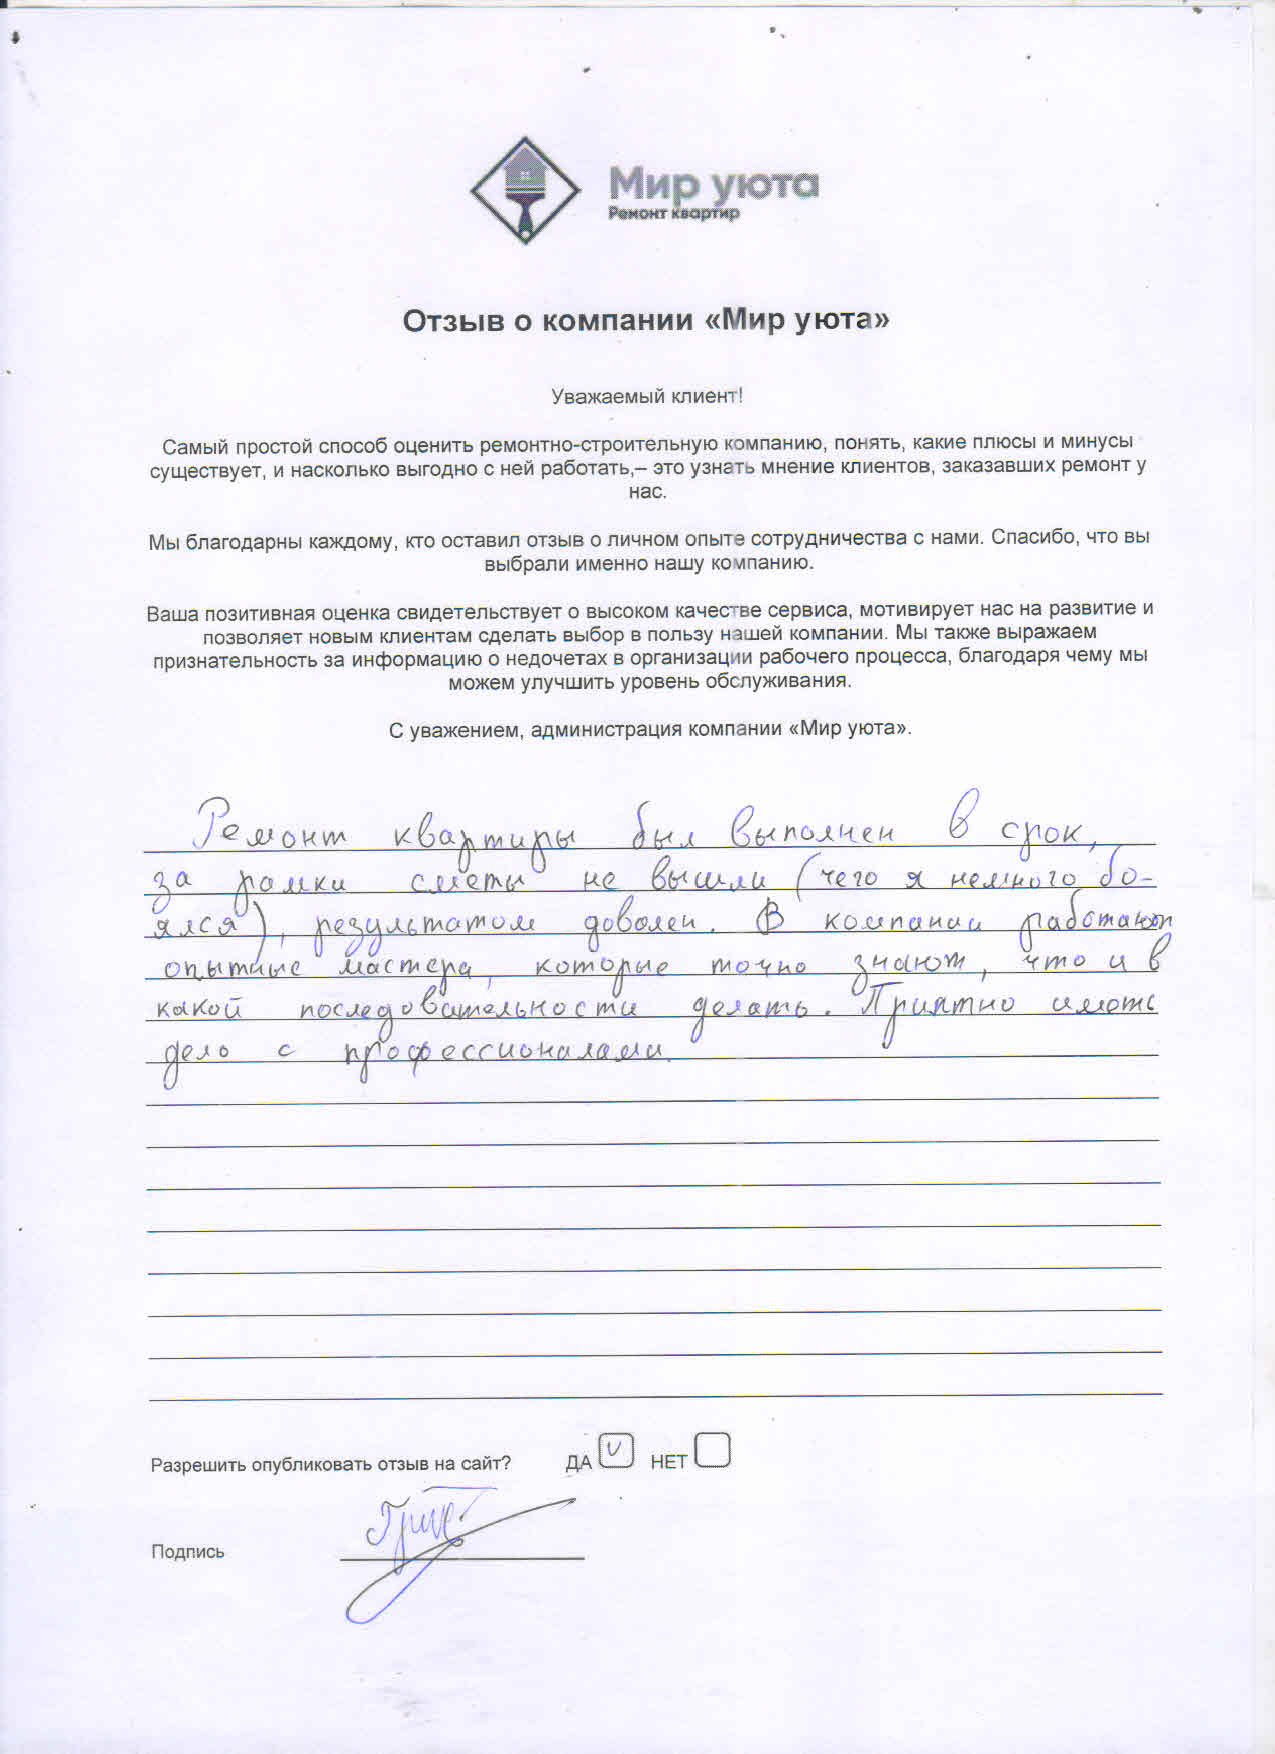 Мир уюта
Ремонт квартир
Отзыв о компании «Мир уюта»
Уважаемый клиент!
Самый простой способ оценить ремонтно-строительную компанию, понять, какие плюсы и минусы
существует, и насколько выгодно с ней работать,– это узнать мнение клиентов, заказавших ремонт у
нас.
Мы благодарны каждому, кто оставил отзыв о личном опыте сотрудничества с нами. Спасибо, что вы
выбрали именно нашу компанию.
Ваша позитивная оценка свидетельствует о высоком качестве сервиса, мотивирует нас на развитие и
позволяет новым клиентам сделать выбор в пользу нашей компании. Мы также выражаем
признательность за информацию о недочетах в организации рабочего процесса, благодаря чему мы
можем улучшить уровень обслуживания.
С уважением, администрация компании «Мир уюта».
Ремонт квартиры был выполнен в срок,
за рамки сметы не вышли (чего я немного бо-
ялся), результатом доволен. В компании работают
опытные мастера, которые точно знают, что и в
какой последовательности делать. Приятно иметь
дело с профессионалами.
Разрешить опубликовать отзыв на сайт? ДА НЕТ
Подпись